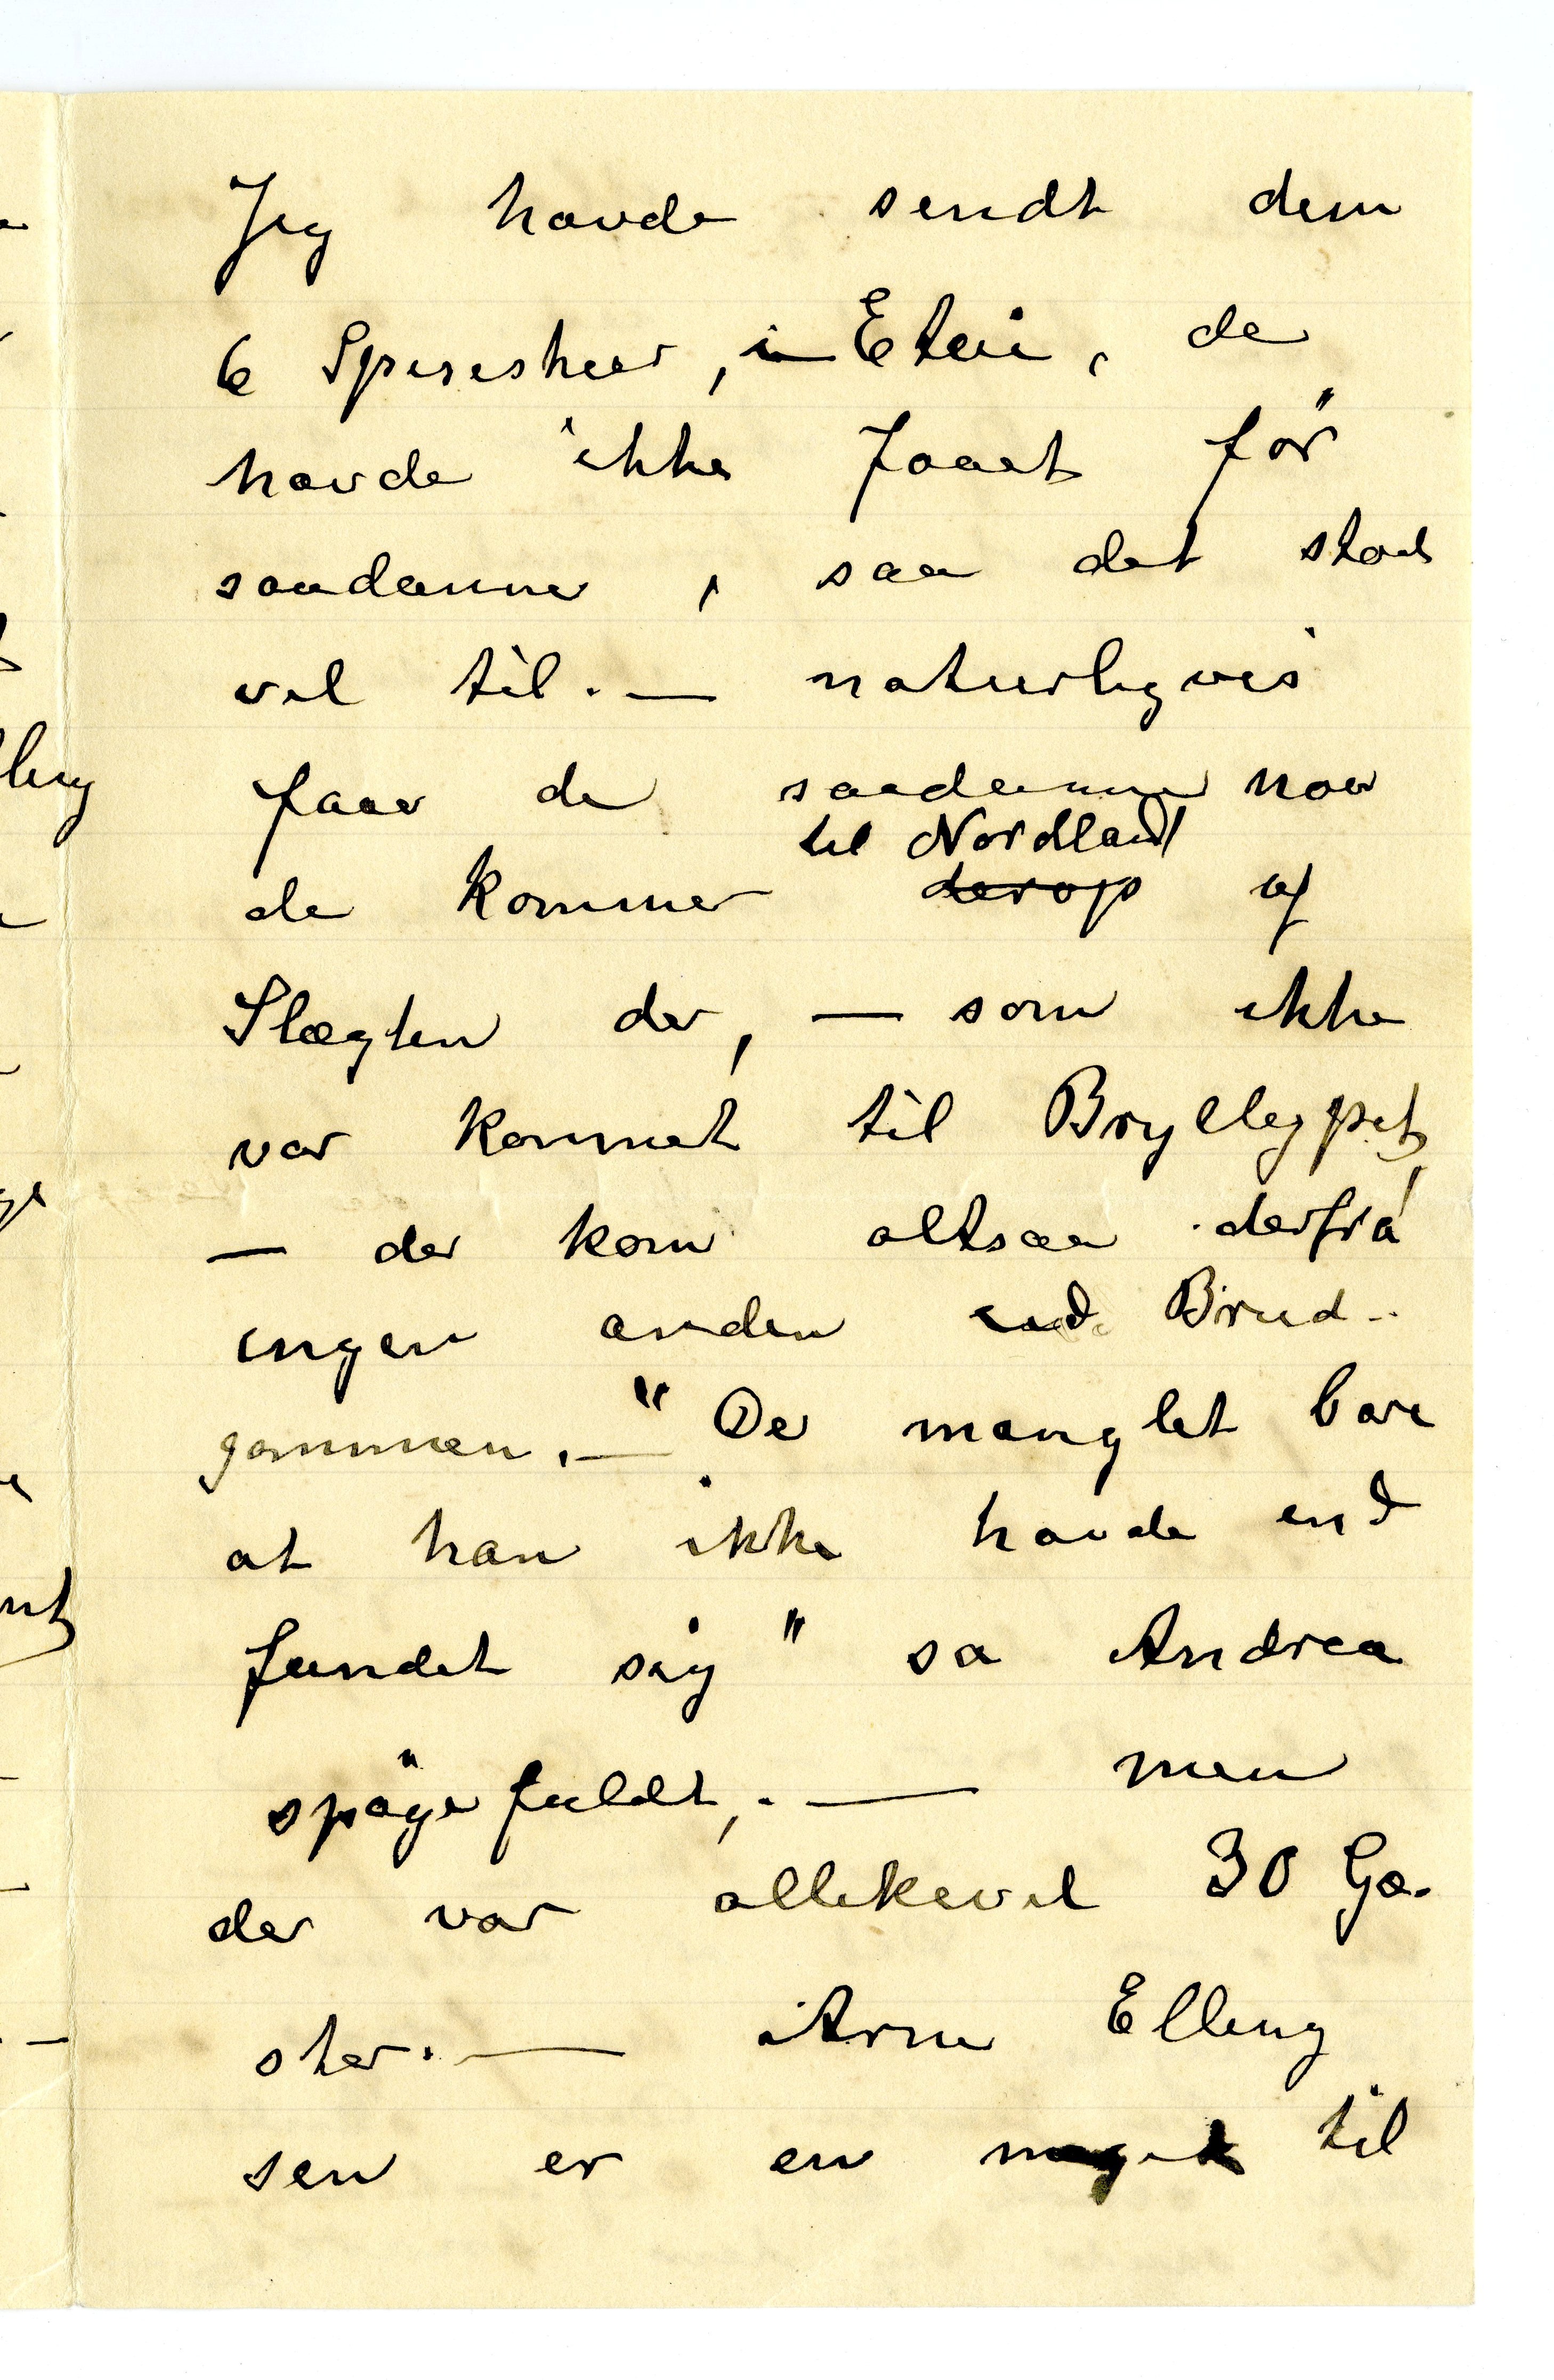 Jeg havde sendt dem
6 Spiseskeer, i Etui, de
havde ikke faaet før
saadanne, saa det stod
vel til. — naturligvis
faar de saadanne naar
de kommer til Nordland derop af
Slægten der, — som ikke
var kommet til Bryllupet,
— der kom altsaa derfra
ingen anden end Brud-
gommen. — "De manglet bare
at han ikke havde end
fundet sig" sa Andrea
spøgefuldt, . — men
der var allikevel 30 Gæ-
ster. — Arne Elling
sen er en meget til